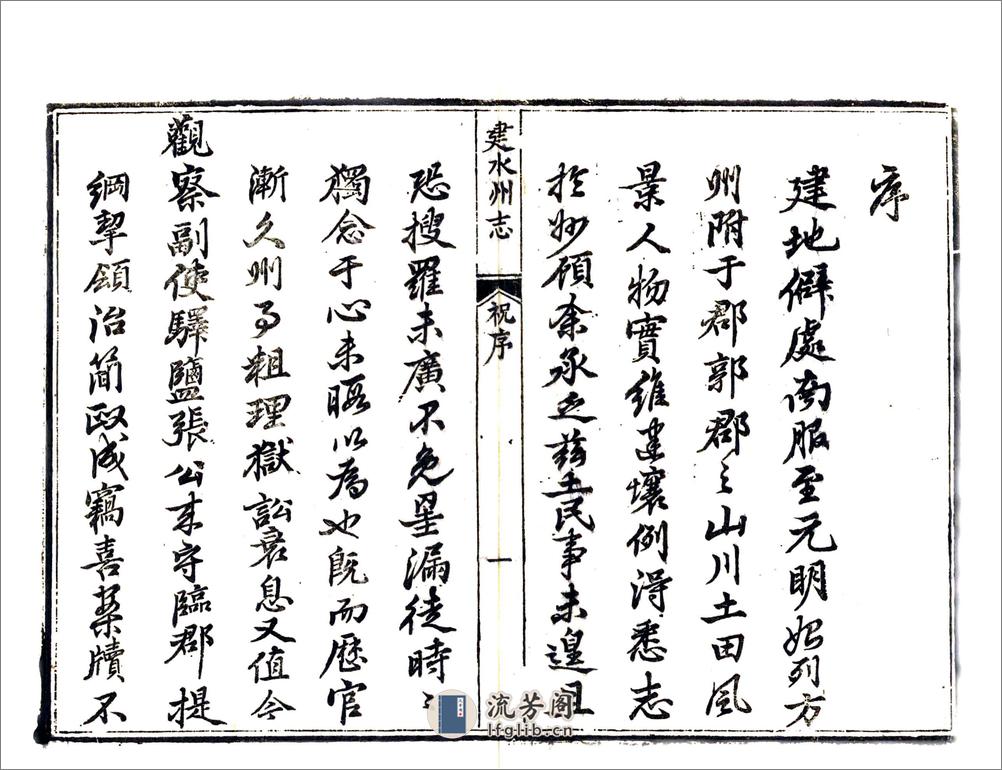 序
建地僻處南服至元明始列方
州附于郡郭郡之山川土田風
景人物實維建壤例得悉志
於妙頎余承乏茲土民事未遑且
建水州志
祝序
一
恐搜羅未廣不免星漏徒時〻
獨念于心未暇以為也既而歷官
漸久州事粗理獄訟衰息又值今
觀察副使驛鹽張公來守臨郡提
綱挈領治簡政成竊喜案牘不
流芳阁
lfglib.cn